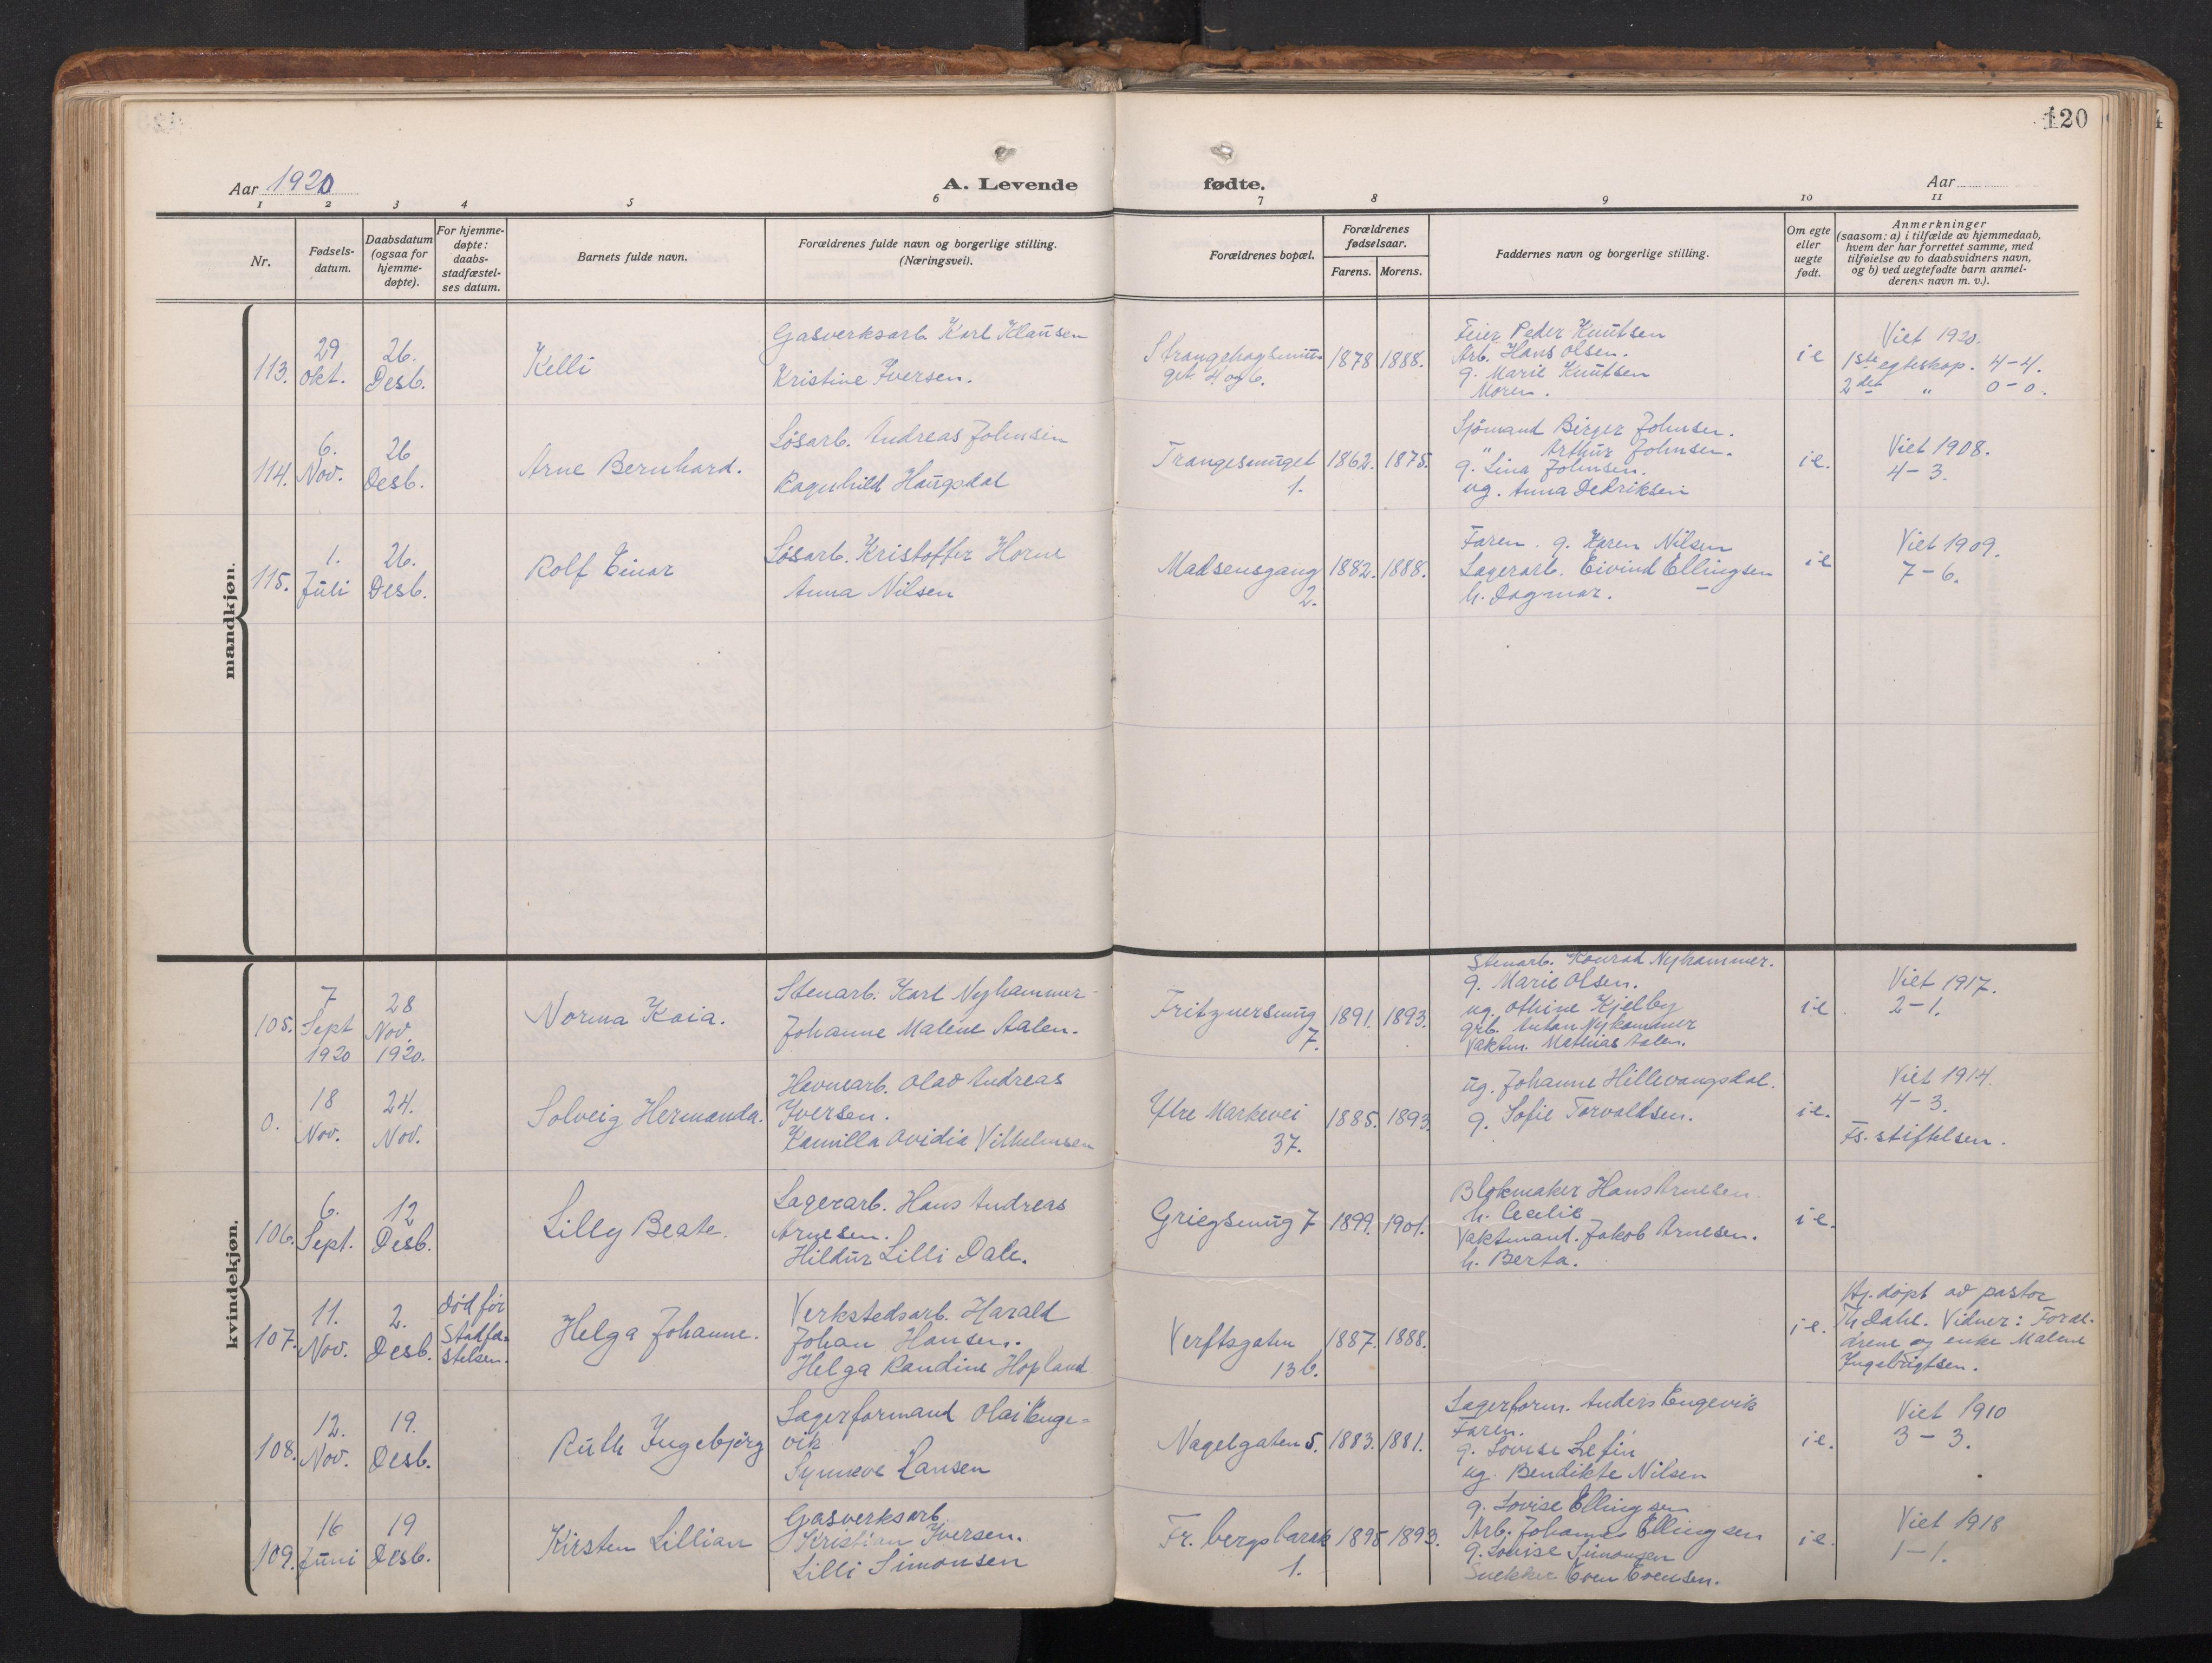 120
Aar 1920
A. Levende
fødte.
Aar
1 2 3 4 5 6 7 8 9 10 11
Nr.
Fødsels-
datum.
Daabsdatum
(ogsaa for
hjemme-
døpte).
For hjemme-
døpte:
daabs-
stadfæstel-
ses datum.
Barnets fulde navn.
Forældrenes fulde navn og borgerlige stilling.
(Næringsvei).
Forældrenes bopæl.
Forældrenes
fødselsaar.
Farens. Morens.
Faddernes navn og borgerlige stilling.
Om egte
eller
uegte
født.
Anmerkninger
(saasom: a) i tilfælde av hjemmedaab,
hvem der har forrettet samme, med
tilføielse av to daabsvidners navn,
og b) ved uegtefødte barn anmel-
derens navn m. v.).
mandkjøn.
113.
29
Okt.
26.
Desb.
Kelli
Gasverksarb. Karl Klausen
Kristine Iversen.
Strangehagsmu-
get 4 og 6.
1878 1888.
Feier Peder Knutsen
Arb. Hans Olsen.
g. Marie Knutsen
Moren.
ie
Viet 1920.
1ste egteskap. 4-4.
2det " 0-0.
114.
6.
Nov.
26
Desb.
Arne Bernhard.
Løsarb. Andreas Johnsen
Ragnhild Haugsdal
Trangesmuget
1.
1862. 1875.
Sjömand Birger Johnsen.
" Arthur Johnsen.
g. Lina Johnsen.
ug. Anna Dedriksen
ie.
Viet 1908.
4-3.
115.
1.
Juli
26.
Desb.
Rolf Einar
Løsarb. Kristoffer Horne
Anna Nilsen
Madsensgang
2.
1882. 1888.
Faren. g. Karen Nilsen
Lagerarb. Eivind Ellingsen
h. Dagmar.
ie
Viet 1909.
7-6.
kvindekjøn.
105.
7
Sept
1920
28
Nov.
1920.
Norma Kaia.
Stenarb. Karl Nyhammer
Johanne Malene Aalen.
Fritznersmug
7.
1891. 1893.
Stenarb. Konrad Nyhammer.
g. Marie Olsen.
ug. Othine Kjelby
grb. Anton Nyhammer
Vaktm. Mathias Aalen.
ie
Viet 1917.
2-1.
0.
18
Nov.
24.
Nov.
Solveig Hermanda.
Havnearb. Olav Andreas
Iversen.
Kamilla Ovidia Vilhelmsen
Ytre Markevei
37.
1885. 1893.
ug. Johanne Hillevangsdal.
g. Sofie Torvaldsen.
ie.
Viet 1914.
4-3.
Fs. stiftelsen.
106.
6.
Sept.
12
Desb.
Lilly Beate.
Lagerarb. Hans Andreas
Arnesen.
Hildur Lilli Dale.
Griegsmug 7
1899. 1901.
Blokmaker Hans Arnesen.
h. Cecilie
Vaktmand. Jakob Arnesen.
h. Berta.
ie.
107.
11.
Nov.
2.
Desb.
død før
Stadfæ-
stelsen.
Helga Johanne.
Verkstedsarb. Harald
Johan Hansen.
Helga Randine Hopland
Verftsgaten
13b.
1887. 1888.
ie.
Hj. døpt av pastor
Th Dahl. Vidner: Foræl-
drene og enke Malene
Ingebrigtsen.
108.
12.
Nov.
19.
Desb.
Ruth Ingebjørg
Lagerformand Olai Enge-
vik
Synneve Hansen
Nagelgaten 5.
1883. 1881.
Lagerform. Anders Engevik
Faren.
g. Lovise
ug. Bendikte Nilsen
ie.
Viet 1910
3-3.
109.
16
Juni
19
Desb.
Kirsten Lillian
Gasverksarb.
Kristian Iversen.
Lilli Simonsen
Fr. bergsbarak
1.
1895 1893.
g. Lovise Ellingsen
Arb. Johannes Ellingsen
g. Lovise Simonsen
Snekker Even Evensen.
ie.
Viet 1918
1-1.